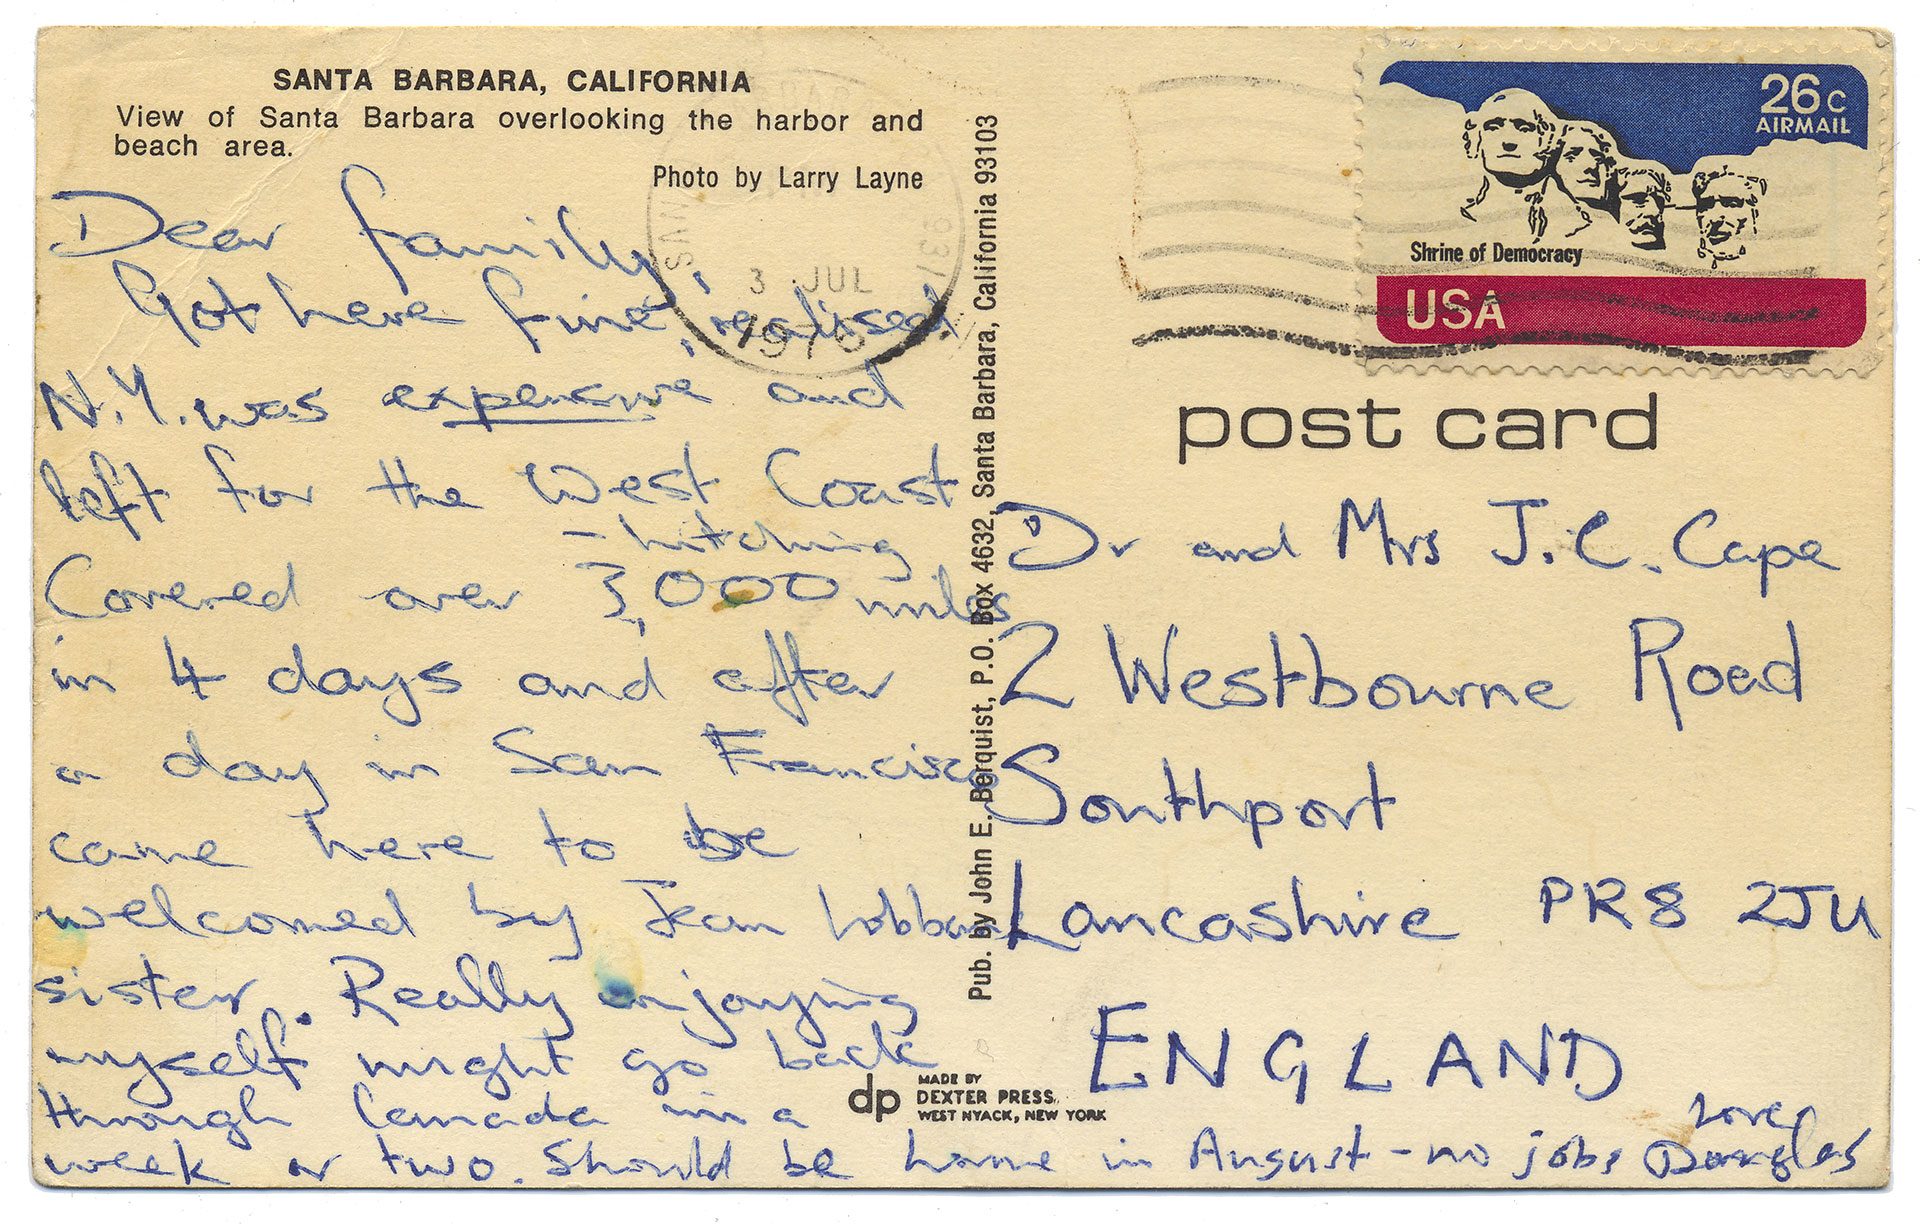 SANTA BARBARA, CALIFORNIA
View of Santa Barbara overlooking the harbor and
beach area.
Photo by Larry Layne
Dear family,
Got here fine, realised
N.Y. was expensive and
left for the West Coast
- hitching
Covered over 3,000 miles
in 4 days and after
a day in San Francisco
came here to be
welcomed by Jean
sister. Really enjoying
myself might go back
through Canada in a
week or two. Should be home in August - no jobs
Love
Douglas
Pub. by John E. Berquist, P.O. Box 4632, Santa Barbara, California 93103
dp
MADE BY
DEXTER PRESS
WEST NYACK, NEW YORK
3 JUL
26c
AIRMAIL
Shrine of Democracy
USA
post card
Dr and Mrs J.C. Cape
2 Westbourne Road
Southport
Lancashire PR8 2JU
ENGLAND